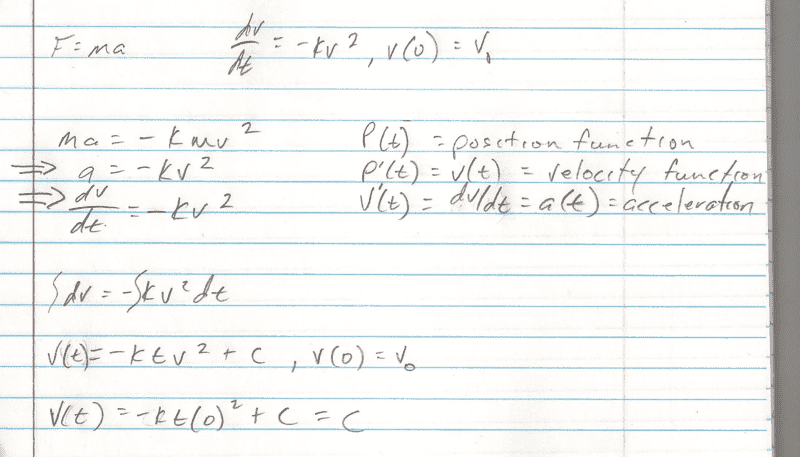 F = ma   dv/dt = -kv², v(0) = V₀
ma = -kmv²   P(t) = position function
⇒ a = -kv²   P'(t) = v(t) = velocity function
⇒ dv/dt = -kv²   V'(t) = dv/dt = a(t) = acceleration
∫dv = -∫kv²dt
V(t) = -ktv² + C, v(0) = v₀
V(t) = -kt(0)² + C = C